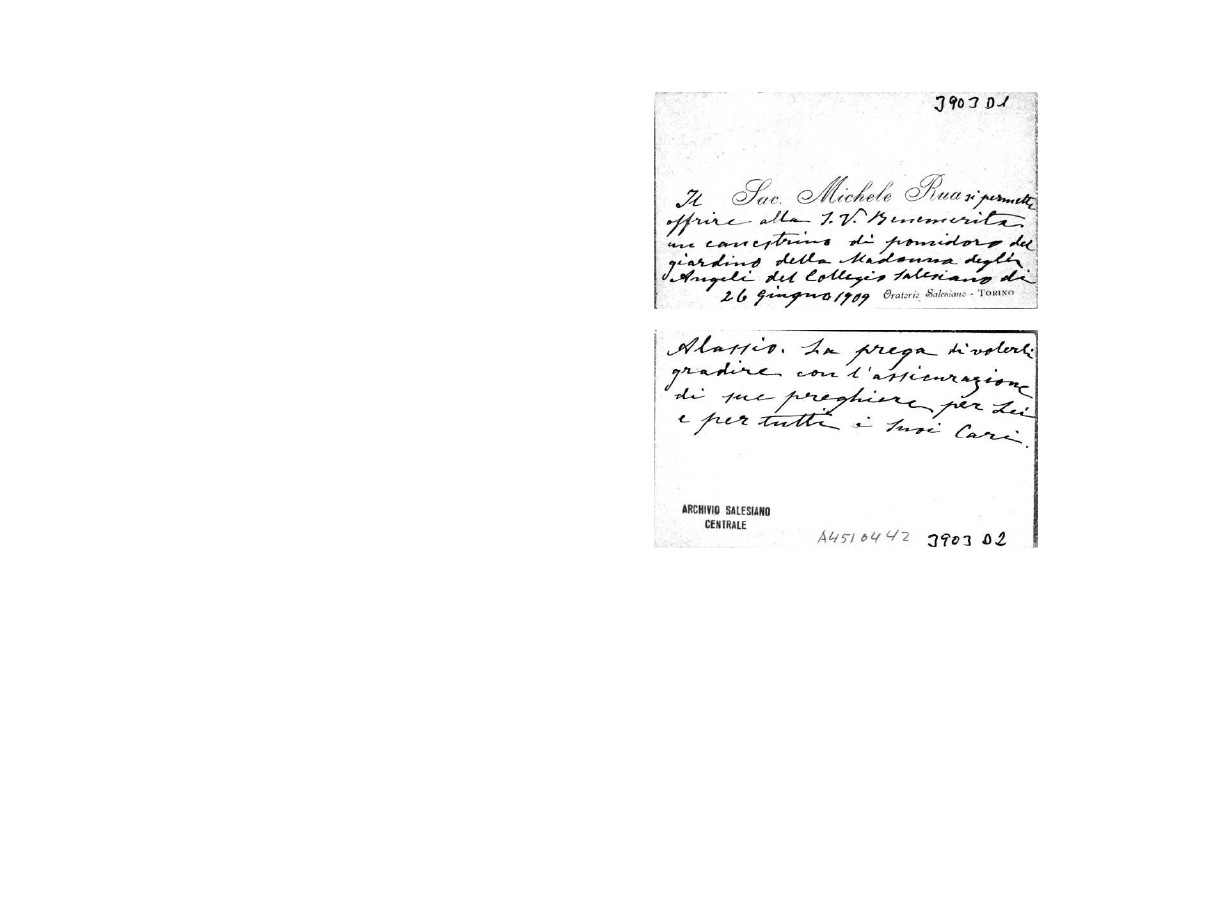 3903 D1
Il Sac. Michele Rua si permette
offrire alla S. V. Benemerita
un canestrino di pomidoro del
giardino della Madonna degli
Angeli del Collegio Salesiano di
26 Giugno 1909 Oratorio Salesiano - TORINO
Alassio. La prega di volerli
gradire con l'assicurazione
di sue preghiere per Lei
e per tutti i Suoi Cari.
ARCHIVIO SALESIANO
CENTRALE
A4510442 3903 D2